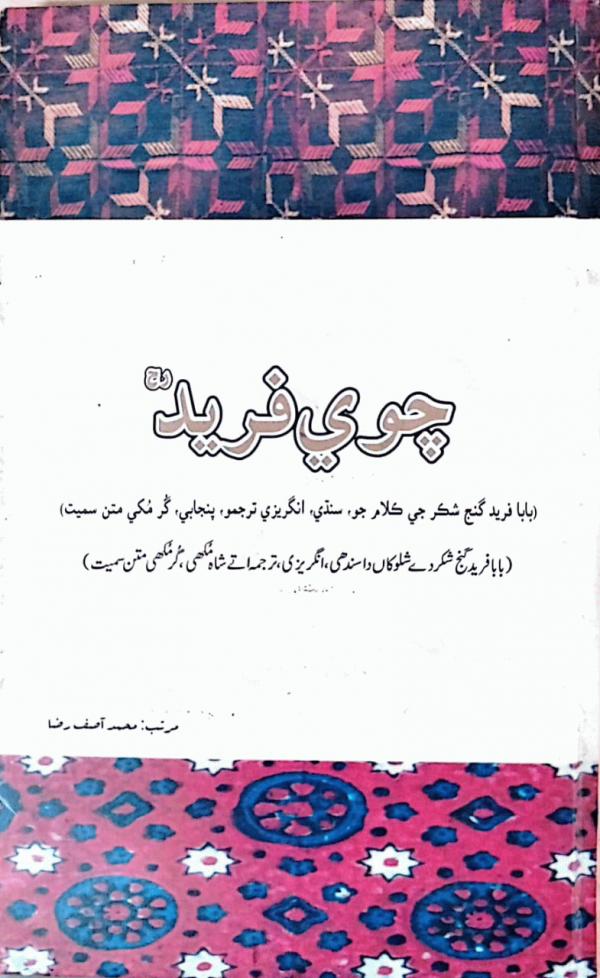 چوي فريدؒ
(بابا فريد گنج شڪر جي ڪلام جو، سنڌي، انگريزي ترجمو، پنجابي، گُر مُکي متن سميت)
(بابا فرید گنج شکر دے شلوکاں دا سندھی، انگریزی، ترجمہ اتے شاہ مُکھی، گُر مُکھی متن سمیت)
مرتب: محمد آصف رضا